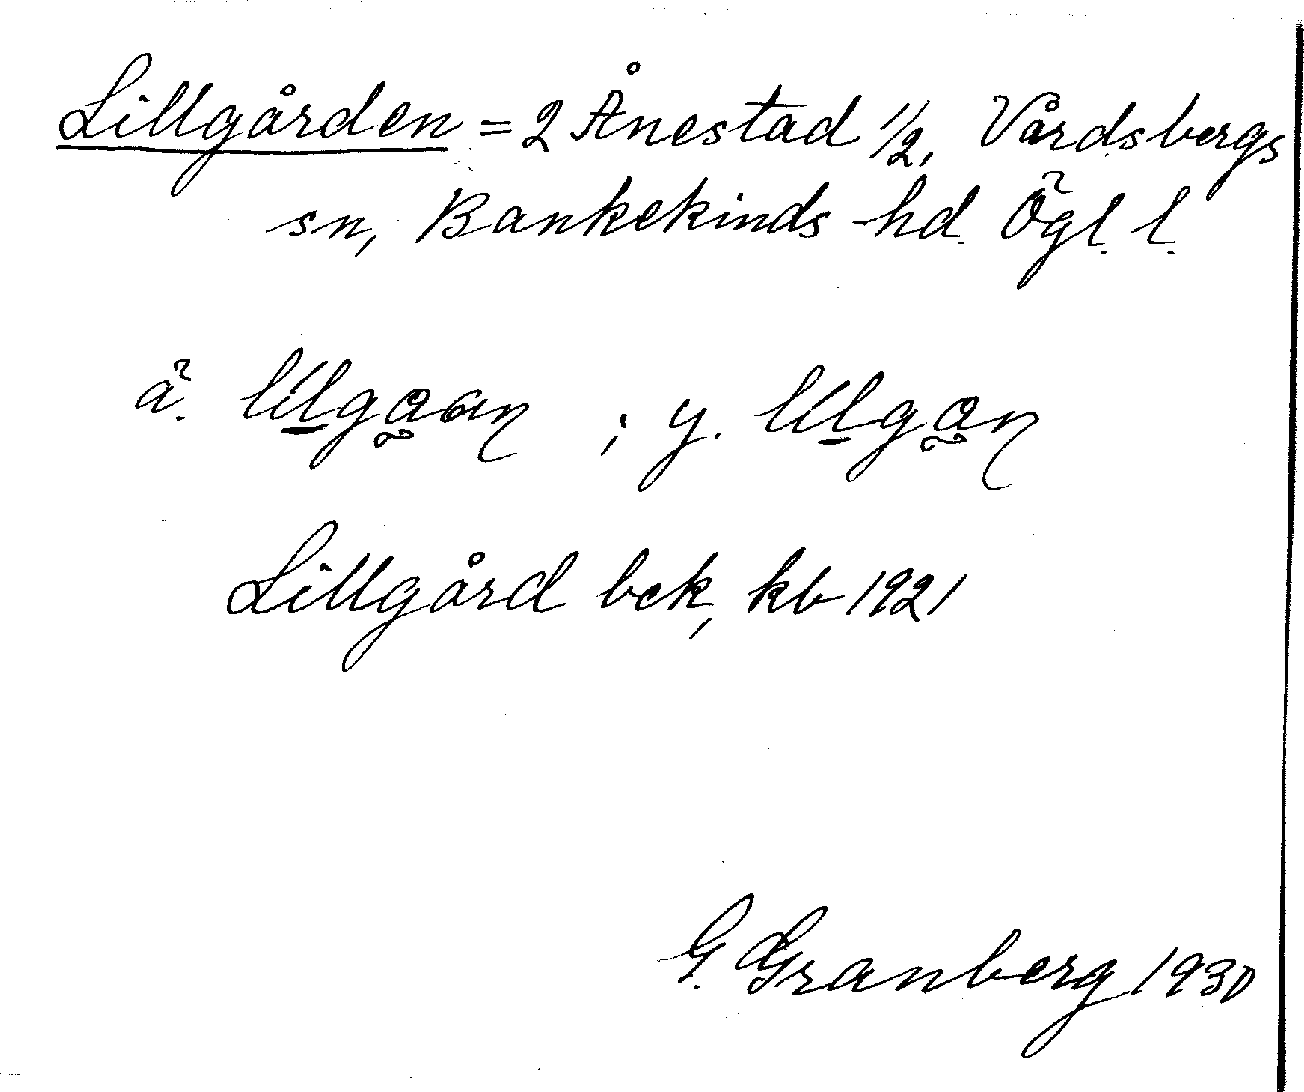 Lillgården = 2 Ånestad 1/2, Vårdsbergs
sn, Bankekinds hd. Ögl. l.
ä. ; y.
Lillgård bek, kb 1921
G. Granberg 1930